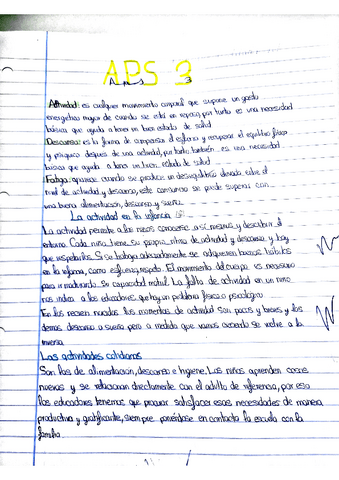 APS 3
Actividad: es cualquier movimiento corporal que supone un gasto
energético mayor de cuando se está en reposo, por tanto es una necesidad
básica que ayuda a tener un buen estado de salud
Descanso: es la forma de compensar el esfuerzo y recuperar el equilibrio físico
y psíquico despues de una actividad, por tanto también es una necesidad
básica que ayuda a tener un buen estado de salud
Fatiga: aparece cuando se produce un desequilibrio elevado entre el
nivel de actividad y descanso, este cansancio se puede superar con
una buena alimentación, descanso y sueño.
La actividad en la infancia
La actividad permite a los niños conocerse a sí mismos y descubrir el
entorno. Cada niño tiene su propio ritmo de actividad y descanso y hay
que respetarlos. Si se trabaja adecuadamente se adquieren buenos hábitos
en la infancia, como esfuerzo, respeto. El movimiento del cuerpo es necesario
para ir madurando su capacidad motriz. La falta de actividad en un niño
nos indica a los educadores que hay un problema físico o psicológico
En los recien nacidos los momentos de actividad son pocos y breves y los
demás descanso o sueño pero a medida que vamos creciendo se vuelve a la
inversa
Las actividades cotidianas
Son las de alimentación, descanso e higiene. Los niños aprenden cosas
nuevas y se relacionan directamente con el adulto de referencia, por eso
los educadores tenemos que procurar satisfacer esas necesidades de manera
productiva y gratificante, siempre poniéndose en contacto la escuela con la
familia.